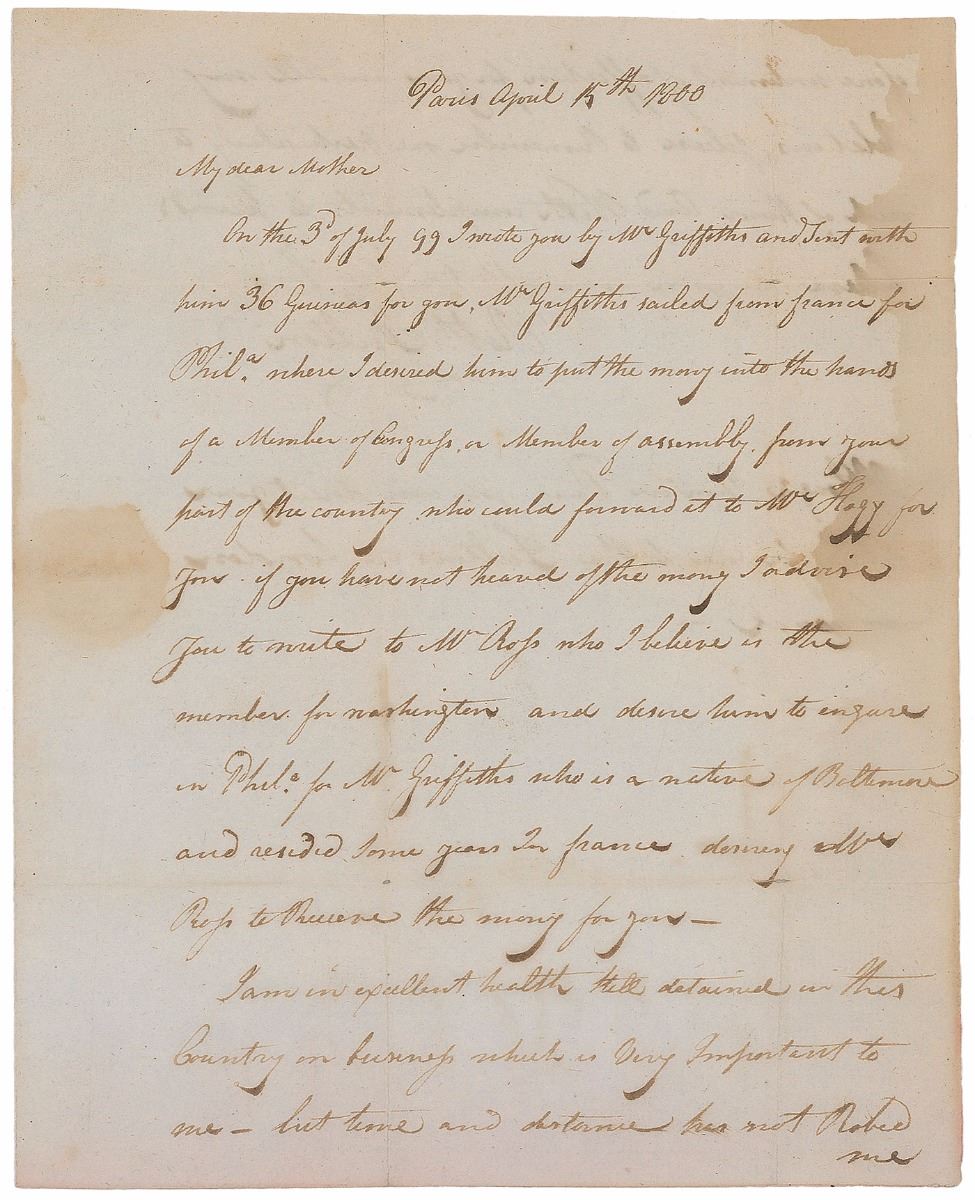 Paris April 15th 1800
My dear Mother
On the 3d of July 99 I wrote you by Mr Griffiths and Sent with
him 36 Guineas for you. Mr Griffiths sailed from france for
Phila. where I desired him to put the mony into the hands
of a Member of Congress, or Member of assembly. from your
part of the country who could forward it to Mr Hogg for
you. if you have not heared of the mony I advise
you to write to Mr Ross who I believe is the
member for washington and desire him to enqure
in Phila. for Mr Griffiths who is a native of Baltimore
and resided Some years In france desiring Mr
Ross to Receve the mony for you —
I am in excellent health still detained in this
Country on business which is Very Important to
me – but time and distance has not Robed
me